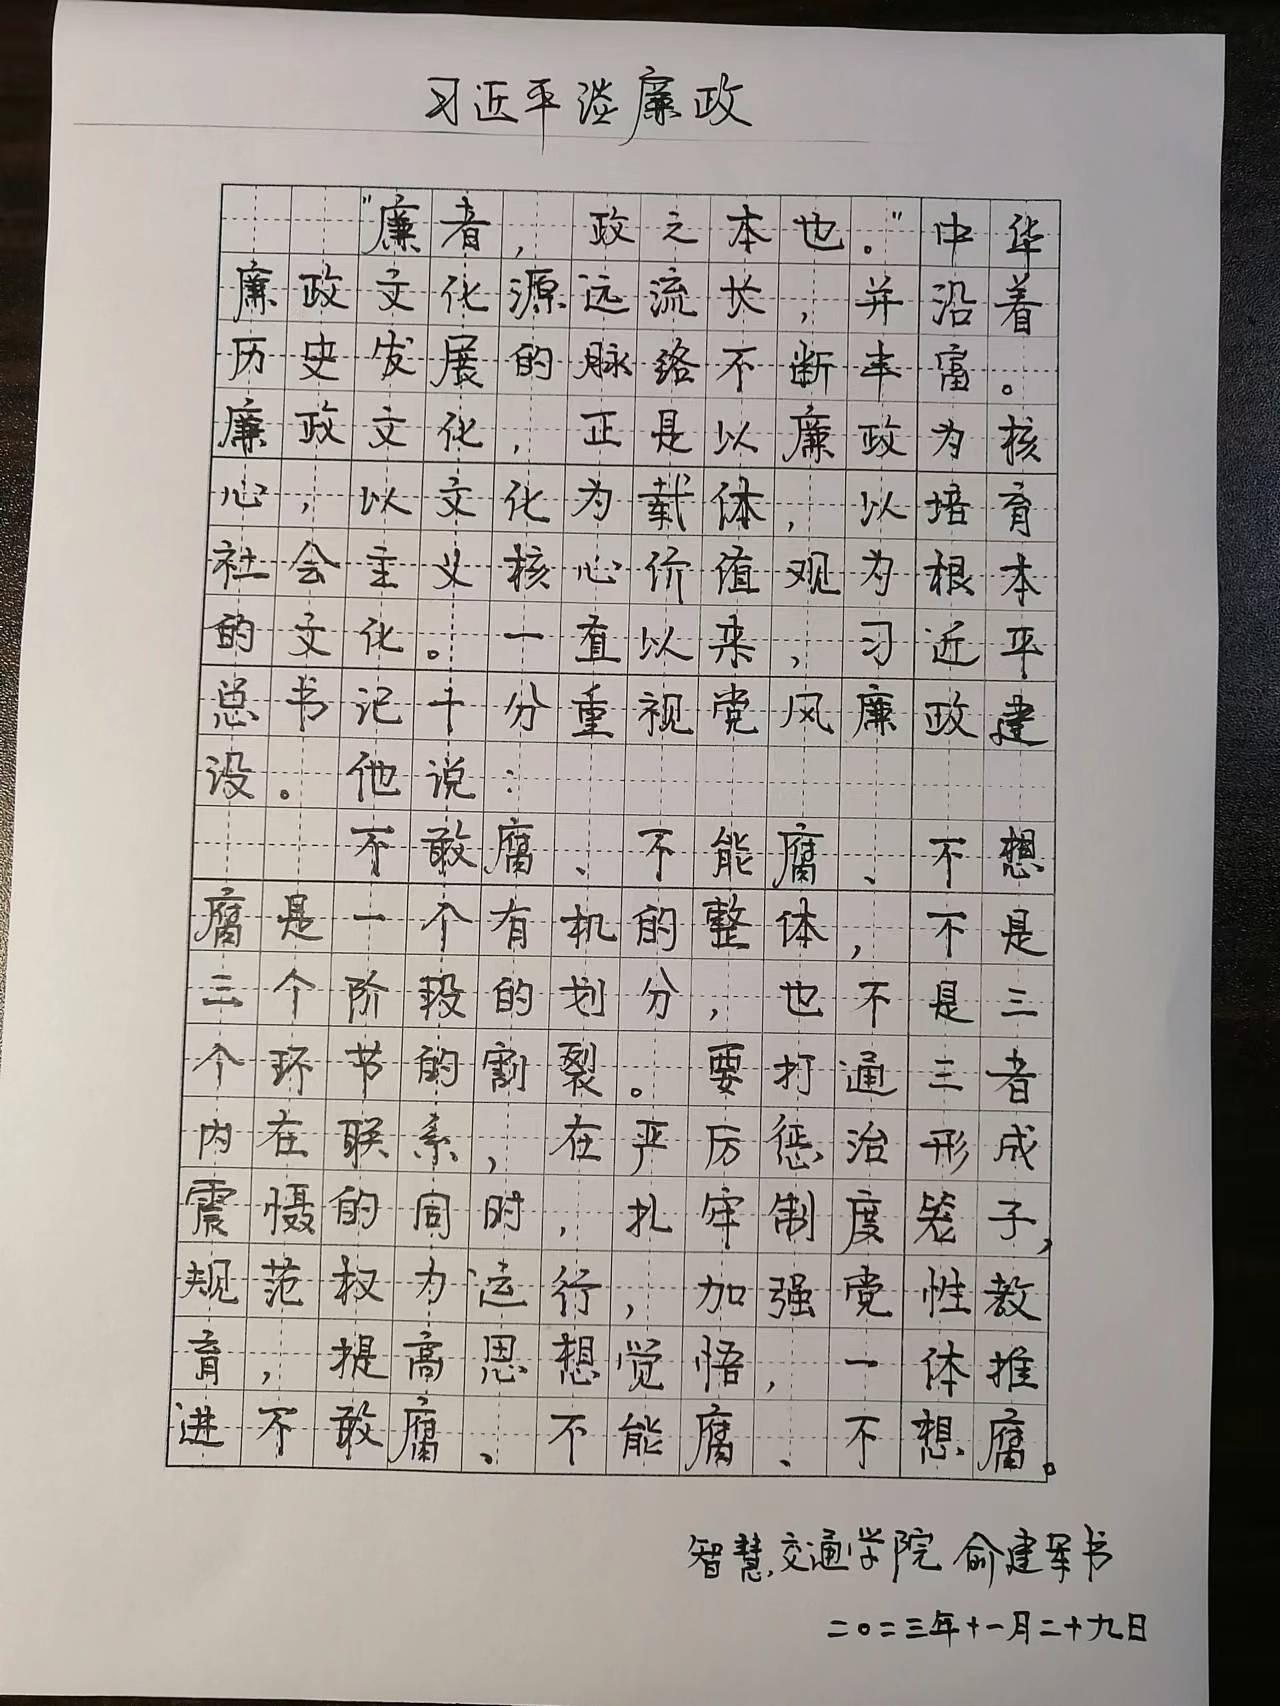 习近平谈廉政
"廉者，政之本也。"中华
廉政文化源远流长，并沿着
历史发展的脉络不断丰富。
廉政文化，正是以廉政为核
心，以文化为载体，以培育
社会主义核心价值观为根本
的文化。一直以来，习近平
总书记十分重视党风廉政建
设。他说：
不敢腐、不能腐、不想
腐是一个有机的整体，不是
三个阶段的划分，也不是三
个环节的割裂。要打通三者
内在联系，在严厉惩治形成
震慑的同时，扎牢制度笼子，
规范权力运行，加强党性教
育，提高思想觉悟，一体推
进不敢腐、不能腐、不想腐。
智慧交通学院 俞建军书
二〇二三年十一月二十九日